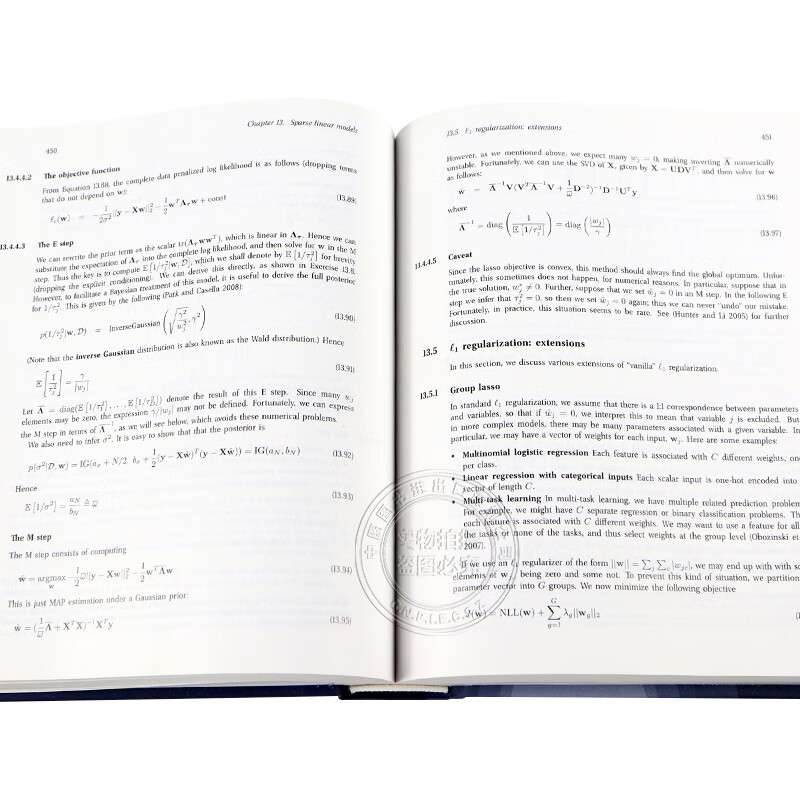 450
Chapter 13. Sparse linear models
13.4.4.2 The objective function
From Equation 13.88, the complete data penalized log likelihood is as follows (dropping terms
that do not depend on w):
ℓc(w) = −1/2σ² ||y − Xw||₂² − 1/2 wᵀΛτw + const (13.89)
13.4.4.3 The E step
We can rewrite the prior term as the scalar tr(Λτwwᵀ), which is linear in Λτ. Hence we can
substitute the expectation of Λτ into the complete log likelihood, and then solve for w in the M
step. Thus the key is to compute E[1/τj²|w, D], which we shall denote by E[1/τj²] for brevity
(dropping the explicit conditioning). We can derive this directly, as shown in Exercise 13.8.
However, to facilitate a Bayesian treatment of this model, it is useful to derive the full posterior
for 1/τj². This is given by the following (Park and Casella 2008):
p(1/τj²|w, D) = InverseGaussian(√(γ²/wj²), γ²) (13.90)
(Note that the inverse Gaussian distribution is also known as the Wald distribution.) Hence
E[1/τj²] = γ/|wj| (13.91)
Let Λ̄ = diag(E[1/τ1²], . . . , E[1/τD²]) denote the result of this E step. Since many wj
elements may be zero, the expression γ/|wj| may not be defined. Fortunately, we can express
the M step in terms of Λ̄⁻¹, as we will see below, which avoids these numerical problems.
We also need to infer σ². It is easy to show that that the posterior is
p(σ²|D, w) = IG(aσ + N/2, bσ + 1/2(y − Xŵ)ᵀ(y − Xŵ)) = IG(aN, bN) (13.92)
Hence
E[1/σ²] = aN/bN ≜ ω̄ (13.93)
The M step
The M step consists of computing
ŵ = argmax w −1/2 ω̄||y − Xw||₂² − 1/2 wᵀΛ̄w (13.94)
This is just MAP estimation under a Gaussian prior:
ŵ = (1/ω̄ Λ̄ + XᵀX)⁻¹Xᵀy (13.95)
13.5. ℓ1 regularization: extensions
451
However, as we mentioned above, we expect many wj = 0, making inverting Λ̄ numerically
unstable. Fortunately, we can use the SVD of X, given by X = UDVᵀ, and then solve for w
as follows:
ŵ = Λ̄⁻¹V(VᵀΛ̄⁻¹V + 1/ω̄ D⁻²)⁻¹D⁻¹Uᵀy (13.96)
where
Λ̄⁻¹ = diag(1/E[1/τj²]) = diag(|wj|/γ) (13.97)
13.4.4.5 Caveat
Since the lasso objective is convex, this method should always find the global optimum. Unfor-
tunately, this sometimes does not happen, for numerical reasons. In particular, suppose that in
the true solution, wj* ≠ 0. Further, suppose that we set ŵj = 0 in an M step. In the following E
step we infer that τj² = 0, so then we set ŵj = 0 again; thus we can never "undo" our mistake.
Fortunately, in practice, this situation seems to be rare. See (Hunter and Li 2005) for further
discussion.
13.5 ℓ1 regularization: extensions
In this section, we discuss various extensions of "vanilla" ℓ1 regularization.
13.5.1 Group lasso
In standard ℓ1 regularization, we assume that there is a 1:1 correspondence between parameters
and variables, so that if ŵj = 0, we interpret this to mean that variable j is excluded. But
in more complex models, there may be many parameters associated with a given variable. In
particular, we may have a vector of weights for each input, wj. Here are some examples:
• Multinomial logistic regression Each feature is associated with C different weights, one
per class.
• Linear regression with categorical inputs Each scalar input is one-hot encoded into a
vector of length C.
• Multi-task learning In multi-task learning, we have multiple related prediction problems.
For example, we might have C separate regression or binary classification problems. Thus
each feature is associated with C different weights. We may want to use a feature for all
the tasks or none of the tasks, and thus select weights at the group level (Obozinski et
2007).
If we use an ℓ1 regularizer of the form ||w|| = ∑j ∑c |wjc|, we may end up with with some
elements of wj being zero and some not. To prevent this kind of situation, we partition
parameter vector into G groups. We now minimize the following objective
J(w) = NLL(w) + ∑ G g=1 λg||wg||₂
实物拍摄
盗图必究
C.N.P.I.E.G.C